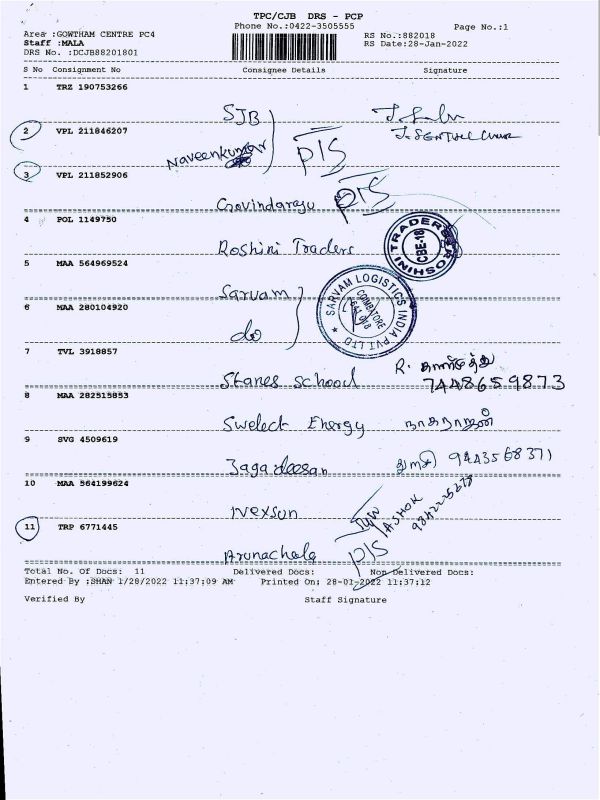 TPC/CJB DRS - PCP
Phone No.:0422-3505555
Page No.:1
Area :GOWTHAM CENTRE PC4
RS No.:882018
Staff :MALA
RS Date:28-Jan-2022
DRS No. :DCJB88201801
S No Consignment No Consignee Details Signature
1 TRZ 190753266
SJB
J. SENTHIL
2 VPL 211846207
Naveenkumar
P/S
3 VPL 211852906
Govindaraju P/S
4 POL 1149750
Roshini Traders
ROSHINI TRADERS
CBE-18
5 MAA 564969524
Sarvam
SARVAM LOGISTICS INDIA PVT LTD
COIMBATORE
6 MAA 280104920
do
7 TVL 3918857
Stanes school R.
7448659873
8 MAA 282515853
Swelect Energy நாகராஜன்
9 SVG 4509619
Jagadeesan 9443568371
10 MAA 564199624
Nexsun
ASHOK
11 TRP 6771445
Arunachala P/S
Total No. Of Docs: 11 Delivered Docs: Non-Delivered Docs:
Entered By :SHAN 1/28/2022 11:37:09 AM Printed On: 28-01-2022 11:37:12
Verified By Staff Signature